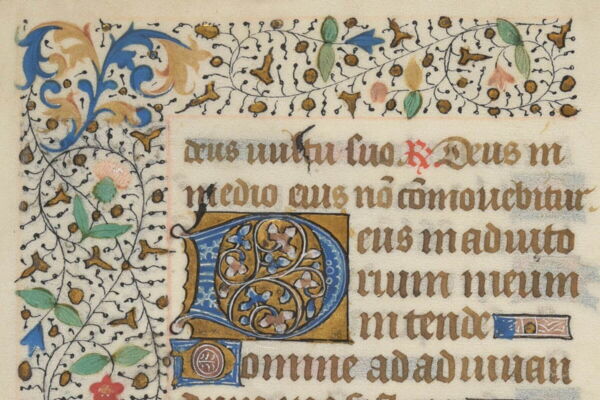 deus uultu suo. R Deus in
medio eius nō cōmouebitur.
Deus in adiuto
rium meum
intende
Domine ad adiuuan